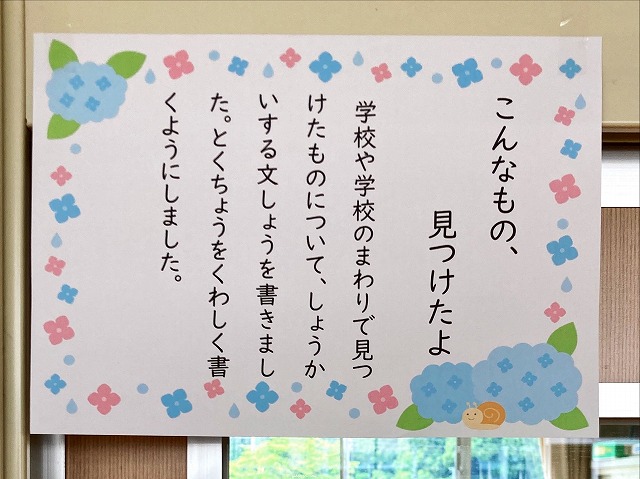 こんなもの、
見つけたよ
学校や学校のまわりで見つ
けたものについて、しょうか
いする文しょうを書きまし
た。とくちょうをくわしく書
くようにしました。